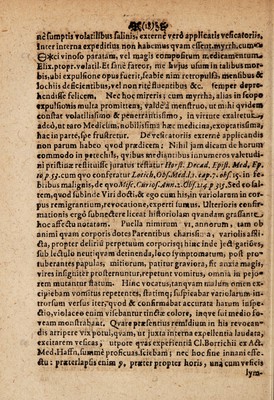 (187)
nè sumptis volatilibus salinis, externè verò applicatis vesicatoriis,
Inter interna expeditius non habemus quàm essent. myrrh. cum
vinoso paratam, vel magis compositum medicamentum
Elix. propr. volatil. Et sanè fateor, me hujus usum in talibus mor-
bis, ubi expulsione opus fuerit, seabie nim retropulsa, mensibus &
lochiis deficientibus, vel non rite fluentibus &c. semper depre-
hendisse felicem. Nec hoc miretis; cum myrrha, alias in scope
expulsionis multa promittens, valde à menstruo, ut mihi quidem
constat volatilissimo & penetrantissimo, in virtute exaltetur,
adeò, ut raro Medicum, nobilissima hac medicina, exoptatissima,
hac in parte, spe frustretur. De vesicatoriis externè applicandis
non parum habeo quod prædicem. Nihil jam dicam de horum
commodo in petechiis, quibus mediantibus innumeros valetudi-
ni pristinæ restitutos juratus testatur Horst. Decad. Epist. Med. Ep.
10 p. 55. cum quo confertur Loetich, Obs. Med. l. 2. cap. 7. obs. 15. in fe-
bribus malignis, de quo Misc. Curios. Ann. 2. Obs. 214 p 315. Sed ò salu-
tem, quod subinde Viri docti & ego cum his, in variolarum in cor-
pus remigrantium, revocatione, experti sumus. Ulterioris confir-
mationis ergò subnectere liceat historiolam quandam grassante
hoc affectu notatam. Puella trimum vi. annorum, tam ob
animi quam corporis dotes Parentibus charissima, variolis affli-
cta, propter delirii perpetuum corporisq; hinc inde jectigatiões,
sub lectulo neutiquam detinenda, loco symptomatum, post pro-
tuberantes papulas, mitiorum, patitur graviora, fit anxia magis,
vires insigniter prosternuntur, repetunt vomitus, omnia in pe-
jorem mutantur statum. Hinc vocatus, tanquam malum omen ex-
cipiebam vomitus repetentes, statimq; suspicabar variolarum in-
trorsum versus iter, quod & confirmabat accurata harum inspe-
ctio, violaceo enim visebantur tinctæ colore, inque sui medio fo-
veam monstrabant. Quare præsentius remedium in his revocan-
dis arripere vix potui, quàm, ut juxta interna expellentia laudata,
excitarem vesicas, utpote quas experientiâ Cl. Borrichii ex Act.
Med. Haffn, summè proficuas, sciebam; nec hoc sine innani effe-
ctu: præterlapsis enim 7, præter propter horis, unà cum vesicis
lym-